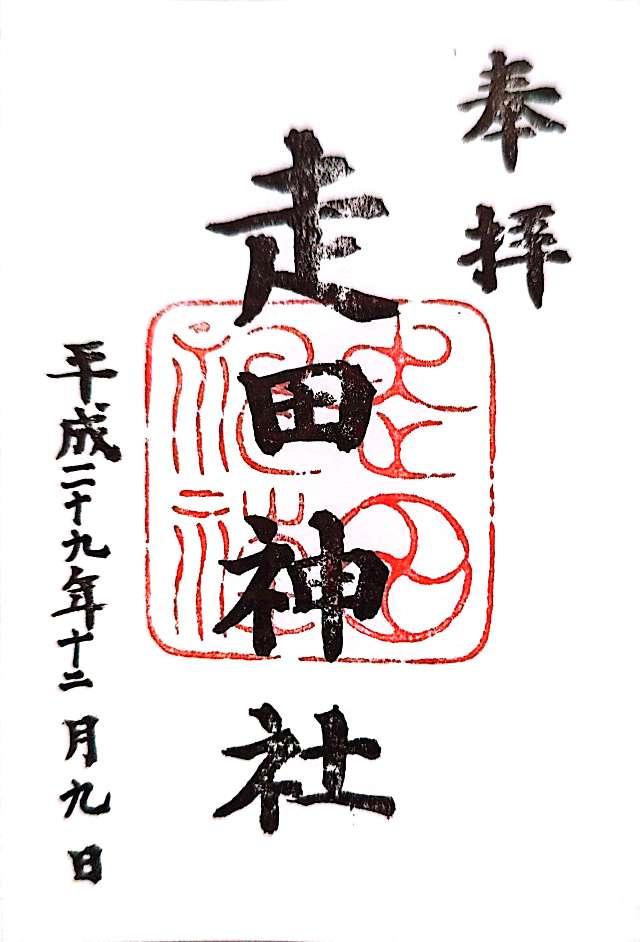 奉拝
走田神社
平成二十九年十二月九日